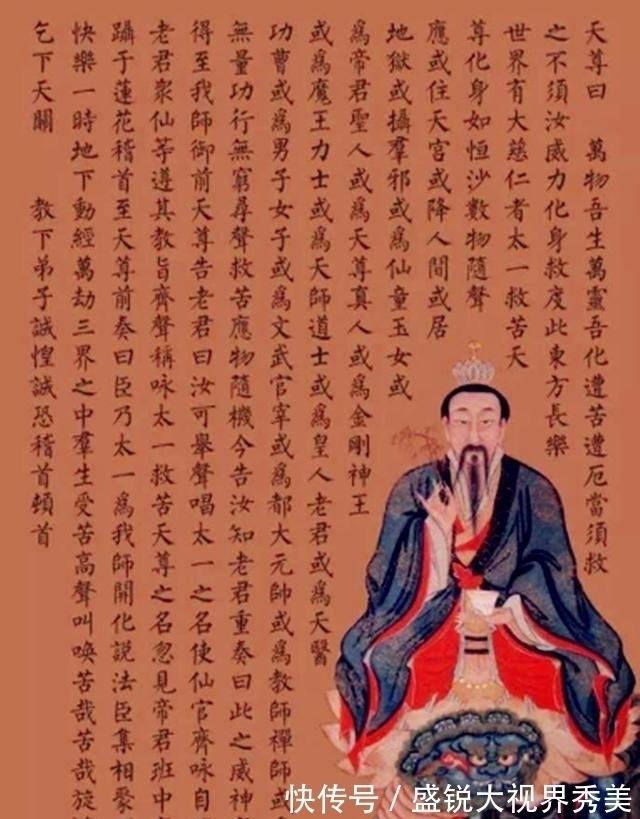 天尊曰　萬物吾生萬靈吾化遭苦遭厄當須救
之不須汝威力化身救度此東方長樂
世界有大慈仁者太一救苦天
尊化身如恒沙數物隨聲
應或住天宮或降人間或居
地獄或攝羣邪或爲仙童玉女或
爲帝君聖人或爲天尊真人或爲金剛神王
或爲魔王力士或爲天師道士或爲皇人老君或爲天醫
功曹或爲男子女子或爲文武官宰或爲都大元帥或爲教師禪師或
無量功行無窮尋聲救苦應物隨機今告汝知老君重奏曰此之威神
得至我師御前天尊告老君曰汝可舉聲唱太一之名使仙官齊咏自
老君衆仙等遵其教旨齊聲稱咏太一救苦天尊之名忽見帝君班中
躡于蓮花稽首至天尊前奏曰臣乃太一爲我師開化説法臣集相聚
快樂一時地下動經萬劫三界之中羣生受苦高聲叫喚苦哉苦哉旋
乞下天關　教下弟子誠惶誠恐稽首頓首
快传号 / 盛锐大视界秀美